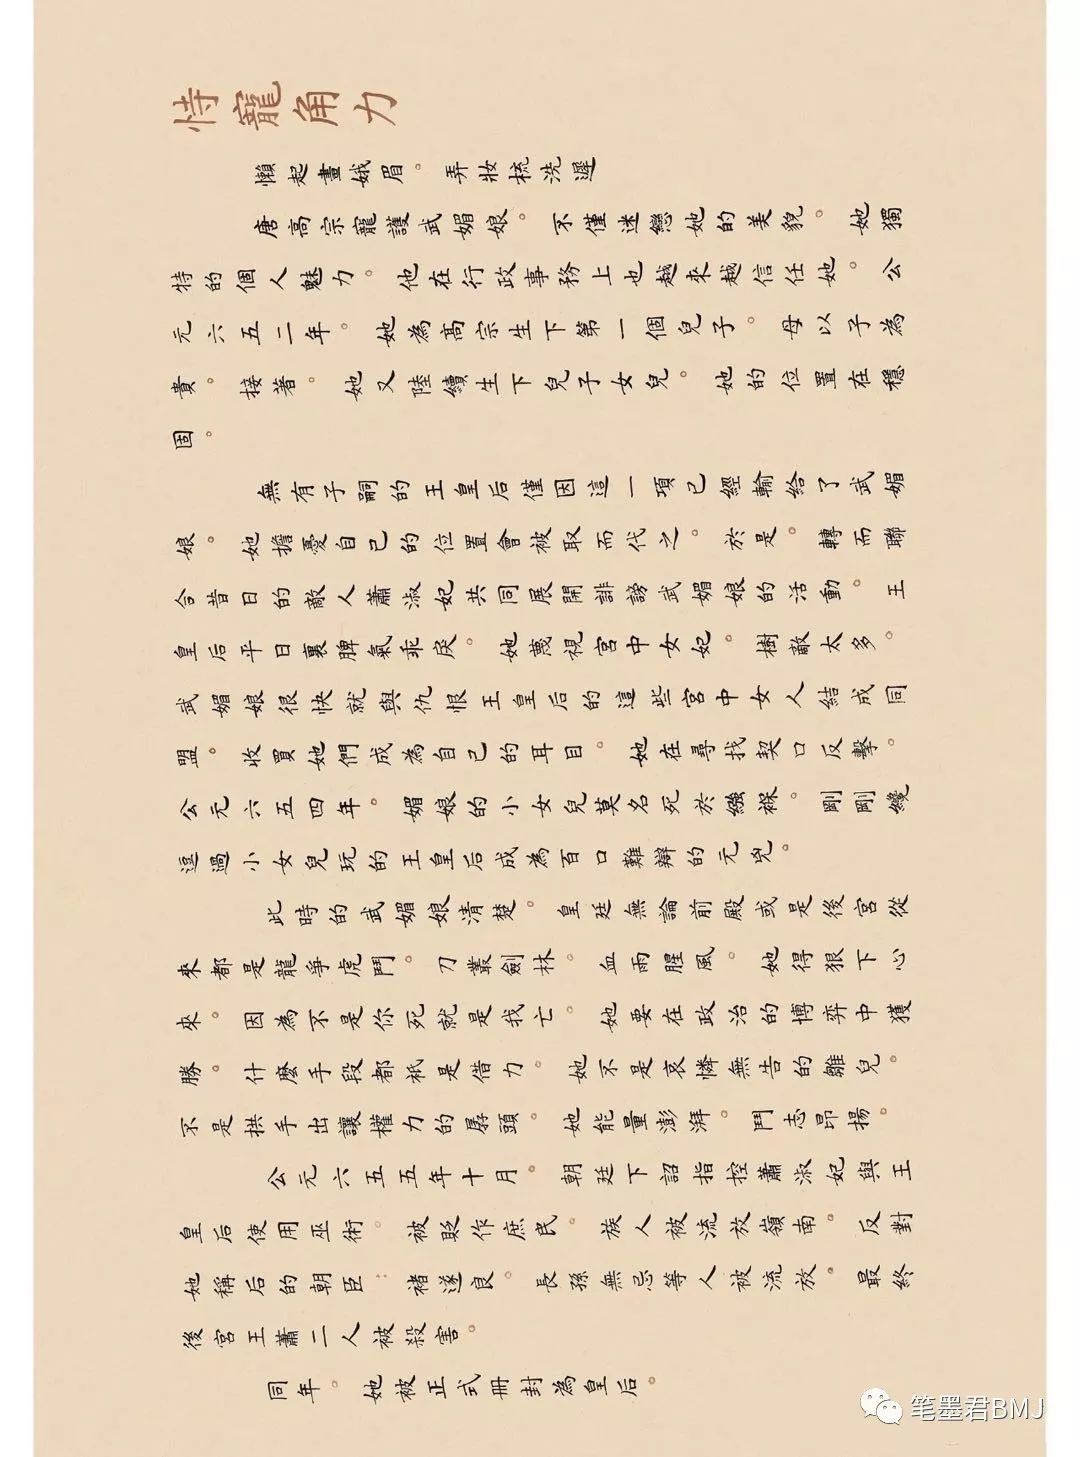 恃寵角力
懶起畫娥眉。弄妝梳洗遲
唐高宗寵護武媚娘。不僅迷戀她的美貌。她獨
特的個人魅力。他在行政事務上也越來越信任她。公
元六五二年。她為高宗生下第一個兒子。母以子為
貴。接著。她又陸續生下兒子女兒。她的位置在穩
固。
無有子嗣的王皇后僅因這一項已經輸給了武媚
娘。她擔憂自己的位置會被取而代之。於是。轉而聯
合昔日的敵人蕭淑妃共同展開誹謗武媚娘的活動。王
皇后平日裏脾氣乖戾。她蔑視宮中女妃。樹敵太多。
武媚娘很快就與仇恨王皇后的這些宮中女人結成同
盟。收買她們成為自己的耳目。她在尋找契口反擊。
公元六五四年。媚娘的小女兒莫名死於繈褓。剛剛纔
逗過小女兒玩的王皇后成為百口難辯的元兇。
此時的武媚娘清楚。皇廷無論前殿或是後宮從
來都是龍爭虎鬥。刀叢劍林。血雨腥風。她得狠下心
來。因為不是你死就是我亡。她要在政治的博弈中獲
勝。什麼手段都衹是借力。她不是哀憐無告的雛兒。
不是拱手出讓權力的孱頭。她能量澎湃。鬥志昂揚。
公元六五五年十月。朝廷下詔指控蕭淑妃與王
皇后使用巫術。被貶作庶民。族人被流放嶺南。反對
她稱后的朝臣：褚遂良。長孫無忌等人被流放。最終
後宮王蕭二人被殺害。
同年。她被正式冊封為皇后。
笔墨君BMJ